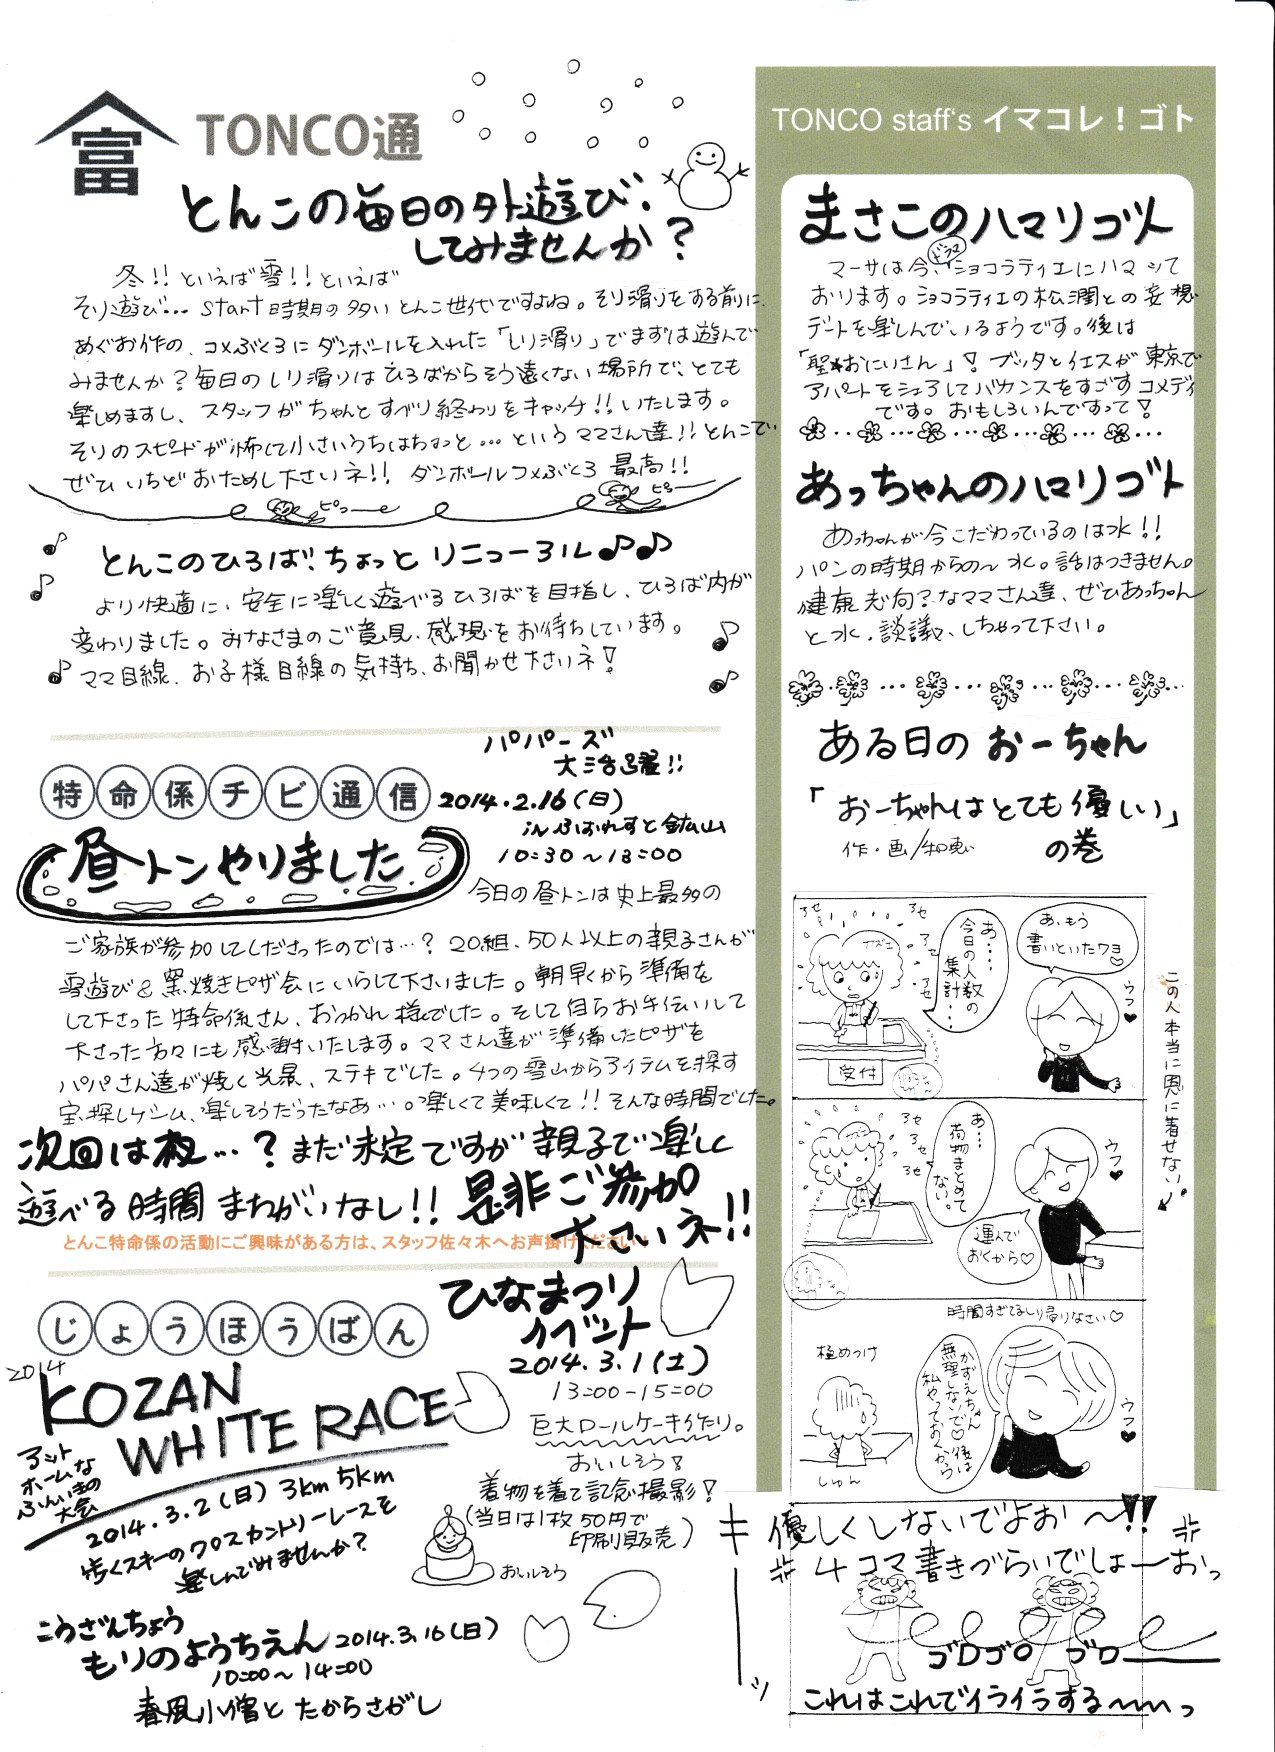 富 TONCO通
とんこの毎日の外遊び、
してみませんか？
冬!! といえば雪!! といえば
そり遊び… start時期の多いとんこ世代ですよね。そり滑りをする前に、
めぐお作の、コメぶくろにダンボールを入れた「しり滑り」でまずは遊んで
みませんか？毎日のしり滑りはひろばからそう遠くない場所で、とても
楽しめますし、スタッフがちゃんとすべり終わりをキャッチ!! いたします。
そりのスピードが怖くて小さいうちはちょっと…というママさん達!! とんこで
ぜひいちどおためし下さいネ!! ダンボールコメぶくろ 最高!!
ピューー
ピュー
とんこのひろば、ちょっとリニューアル♪♪
より快適に、安全に楽しく遊べるひろばを目指し、ひろば内が
変わりました。みなさまのご意見、感想をお待ちしています。
ママ目線、お子様目線の気持ち、お聞かせ下さいネ!
特命係チビ通信
パパーズ
大活躍!!
2014.2.16(日)
in ふぉれすと鉱山
10:30〜13:00
昼トンやりました
今日の昼トンは史上最多の
ご家族が参加してくださったのでは…？ 20組、50人以上の親子さんが
雪遊び&窯焼きピザ会にいらして下さいました。朝早くから準備を
して下さった特命係さん、おつかれ様でした。そして自らお手伝いして
下さった方々にも感謝いたします。ママさん達が準備したピザを
パパさん達が焼く光景、ステキでした。4つの雪山からアイテムを探す
宝探しゲーム、楽しそうだったなあ…。楽しくて美味しくて!! そんな時間でした。
次回は秋…？まだ未定ですが親子で楽しく
遊べる時間まちがいなし!! 是非ご参加
下さいネ!!
とんこ特命係の活動にご興味がある方は、スタッフ佐々木へお声掛けください！
じょうほうばん
2014
KOZAN
WHITE RACE
アット
ホームな
ふんいきの
大会
2014.3.2(日) 3km 5km
歩くスキーのクロスカントリーレースを
楽しんでみませんか？
こうざんちょう
もりのようちえん 2014.3.16(日)
10:00〜14:00
春風小僧と たからさがし
ひなまつり
イベント
2014.3.1(土)
13:00-15:00
巨大ロールケーキ作り。
おいしそう!
着物を着て記念撮影!
(当日は1枚50円で
印刷販売)
おいしそう
TONCO staff's イマコレ！ゴト
まさこのハマリゴト
マーサは今、ドラマショコラティエにハマって
おります。ショコラティエの松潤との妄想
デートを楽しんでいるようです。後は
「聖☆おにいさん」! ブッタとイエスが東京で
アパートをシェアしてバカンスをすごすコメディ
です。おもしろいんですって!
あっちゃんのハマリゴト
あっちゃんが今こだわっているのは水!!
パンの時期からの〜水。話はつきません。
健康志向？なママさん達、ぜひあっちゃん
と水、談議、しちゃって下さい。
ある日の おーちゃん
「おーちゃんはとても優しい」
の巻
作・画/和恵
あ、もう
書いといたワヨ♡
ウフ♥
あ…
今日の人数の
集計…
アセ
アセ
アセ
アセ
カズエ
受付
この人本当に恩に着せない。
あ…
荷物まとめて
ない。
アセ
アセ
アセ
アセ
カズエ
ウフ♥
運んで
おくから♡
時間すぎてるし帰りなさい♡
かずえちゃん
無理しないで♡後は
私やっておくから
極めつけ
しゅん
ウフ♥
優しくしないでよぉ〜!!
4コマ書きづらいでしょーおっ
キーーッ
ゴロゴロ ゴロ――
これはこれでイライラする〜〜っ